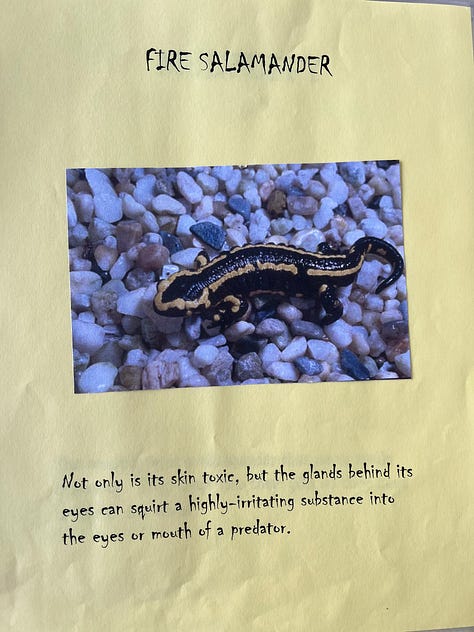 FIRE SALAMANDER
Not only is its skin toxic, but the glands behind its
eyes can squirt a highly-irritating substance into
the eyes or mouth of a predator.